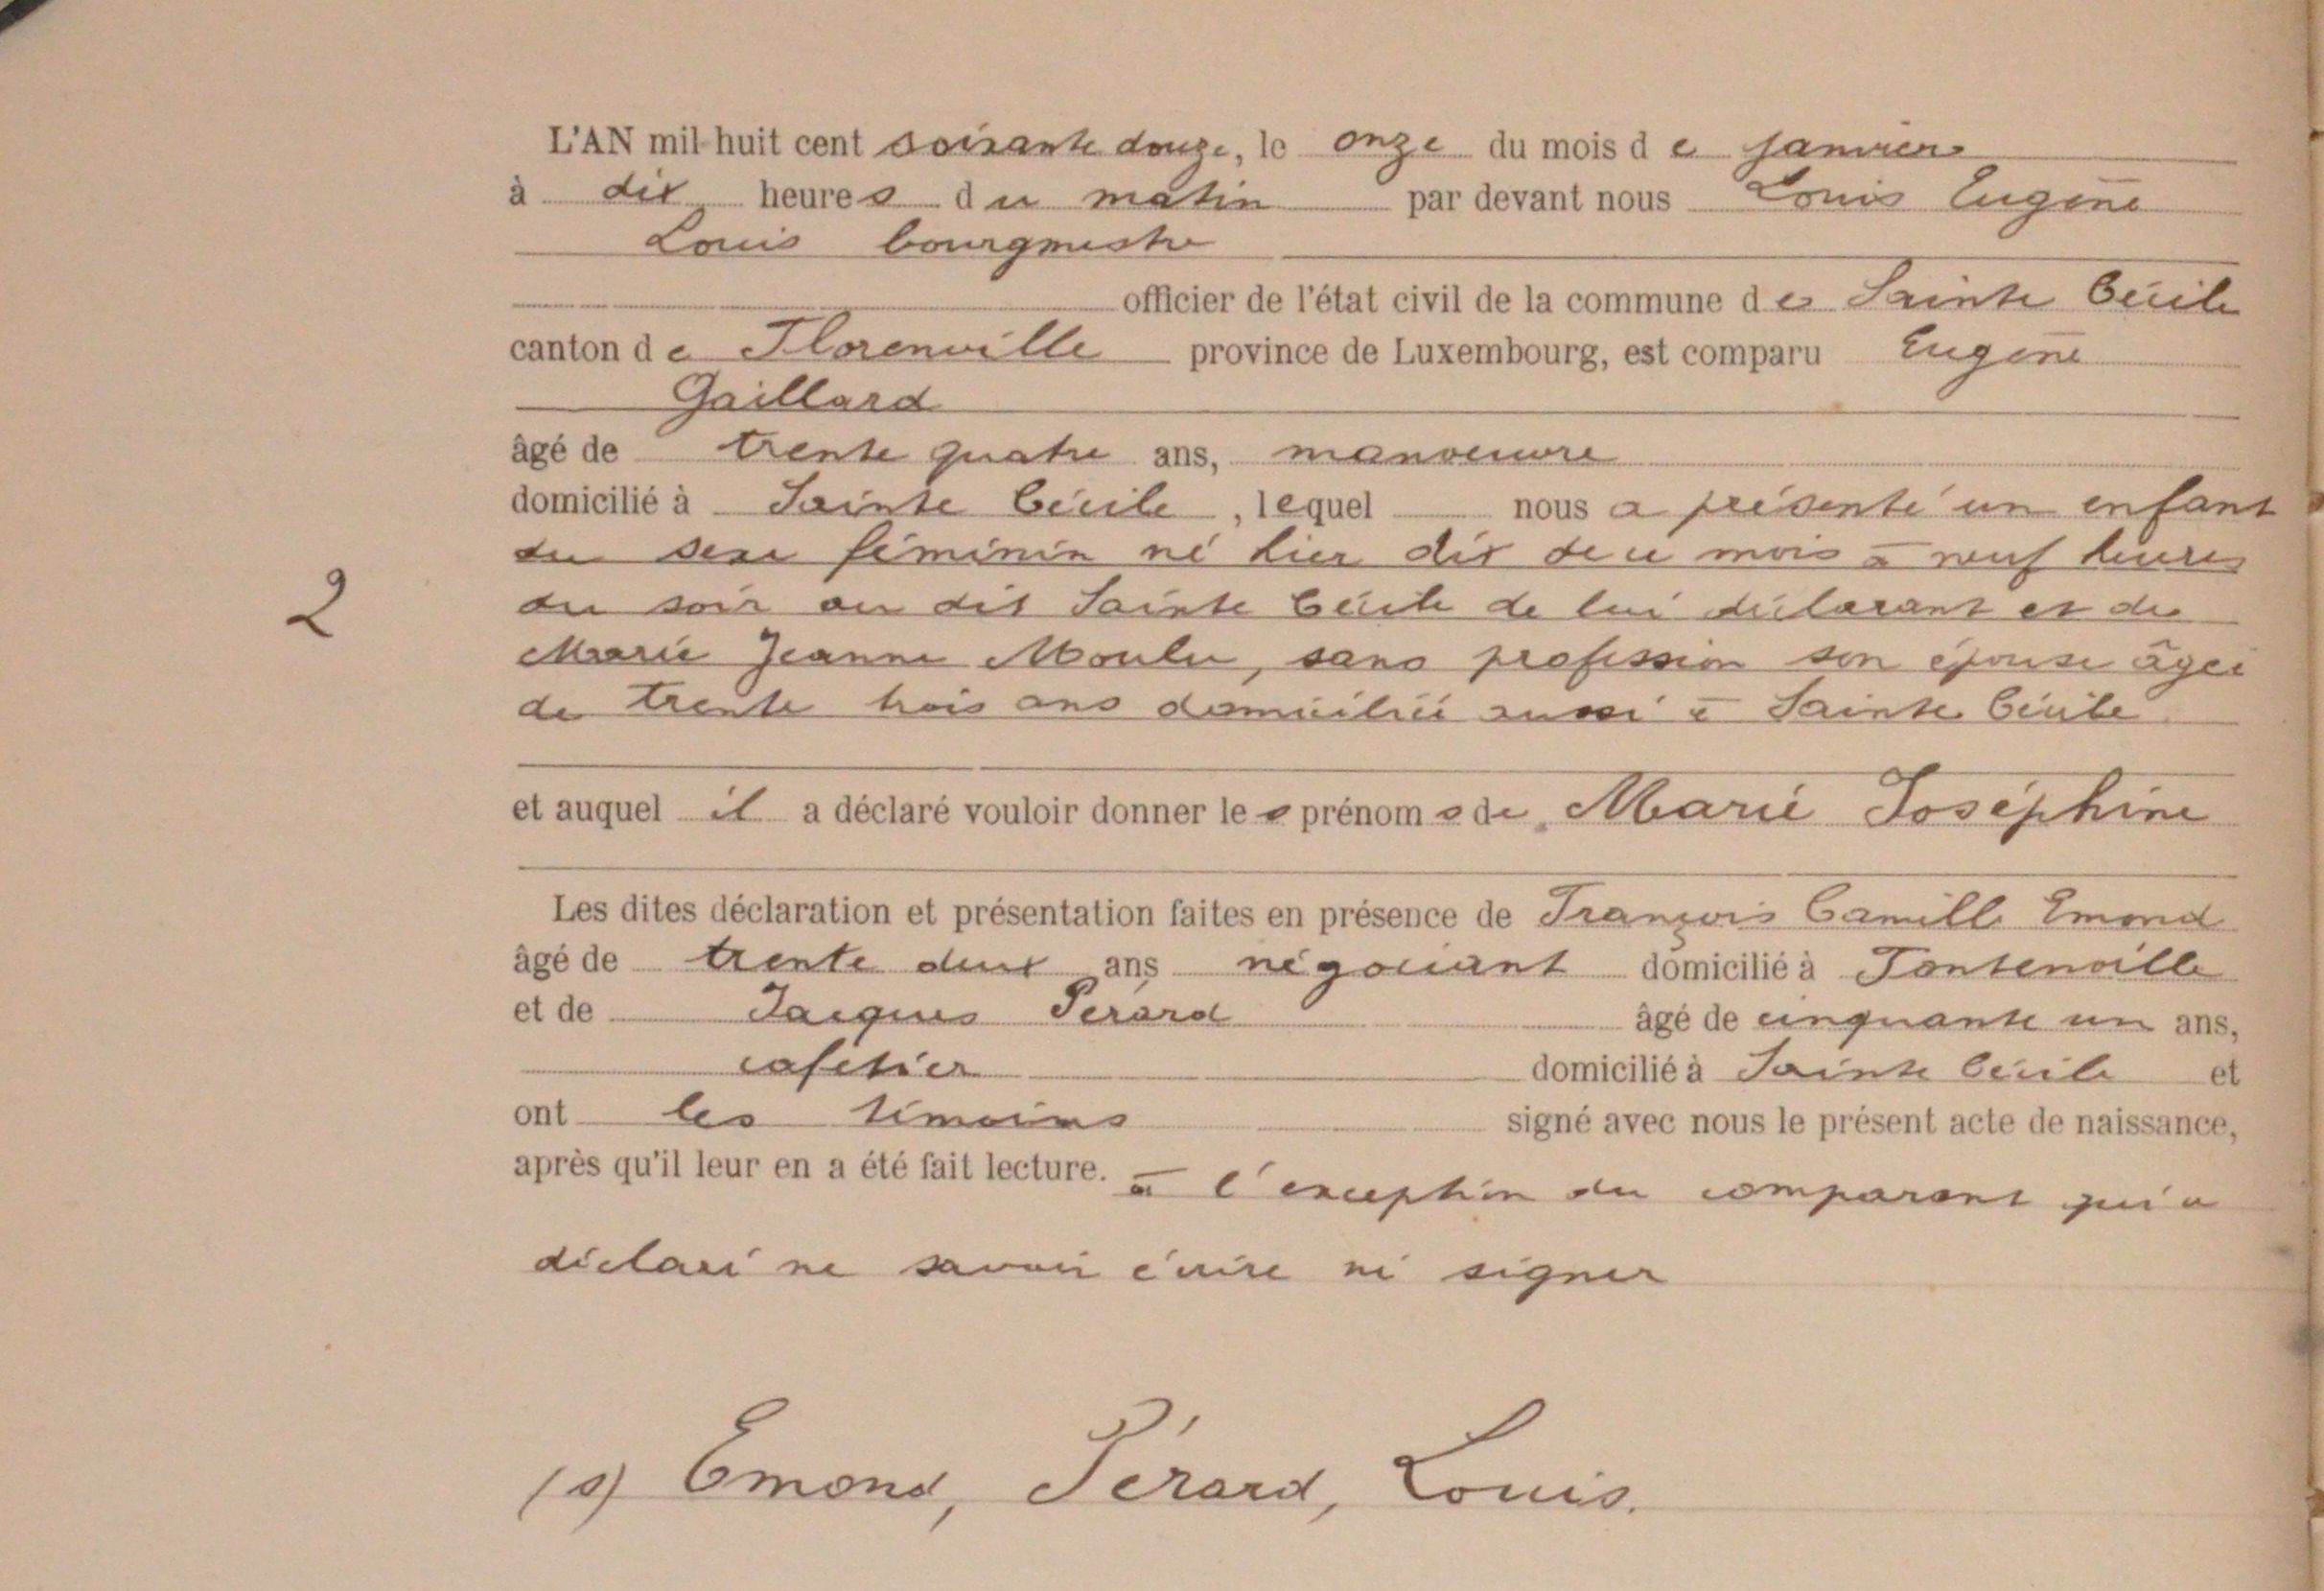 L'AN mil huit cent soixante douze, le onze du mois de janvier
à dix heures du matin par devant nous Louis Eugène
Louis bourgmestre
officier de l'état civil de la commune de Sainte Cécile
canton de Florenville province de Luxembourg, est comparu Eugène
Gaillard
âgé de trente quatre ans, manoeuvre
domicilié à Sainte Cécile, lequel nous a présenté un enfant
du sexe féminin né hier dix de ce mois à neuf heures
du soir au dit Sainte Cécile de lui déclarant et de
2
Marie Jeanne Moulu, sans profession son épouse âgée
de trente trois ans domiciliée aussi à Sainte Cécile
et auquel il a déclaré vouloir donner les prénoms de Marie Joséphine
Les dites déclaration et présentation faites en présence de François Camille Emond
âgé de trente deux ans négociant domicilié à Fontenoille
et de Jacques Pérard âgé de cinquante un ans,
cafetier domicilié à Sainte Cécile et
ont les témoins signé avec nous le présent acte de naissance,
après qu'il leur en a été fait lecture. à l'exception du comparant qui a
déclaré ne savoir écrire ni signer
(s) Emond, Pérard, Louis.